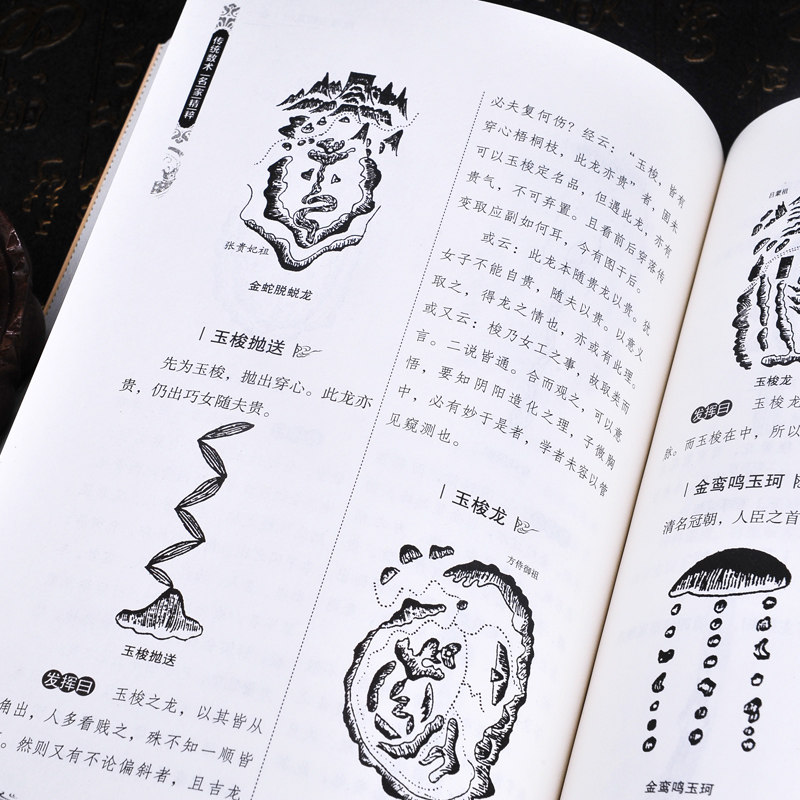 传统数术名家精粹
张贵妃祖
金蛇脱蜕龙
玉梭抛送
先为玉梭，抛出穿心。此龙亦
贵，仍出巧女随夫贵。
玉梭抛送
发挥曰 玉梭之龙，以其皆从
角出，人多看贱之，殊不知一顺皆
。然则又有不论偏斜者，且吉龙
必夫复何伤？经云：“玉梭，皆有
穿心梧桐枝，此龙亦贵”者，固未
可以玉梭定名品，但遇此龙，亦有
贵气，不可弃置。且看前后穿落传
变取应副如何耳，今有图于后。
或云：此龙本随贵龙以贵。犹
女子不能自贵，随夫以贵。以意义
取之，得龙之情也，亦或有此理。
或又云：梭乃女工之事，故取类而
言。二说皆通。合而观之，可以意
悟，要知阴阳造化之理，子微胸
中，必有妙于是者，学者未容以管
见窥测也。
玉梭龙
方侍御祖
吕蒙祖
玉梭龙
发挥曰 玉梭龙
脉。而玉梭在中，所以
金鸾鸣玉珂
清名冠朝，人臣之首
金鸾鸣玉珂